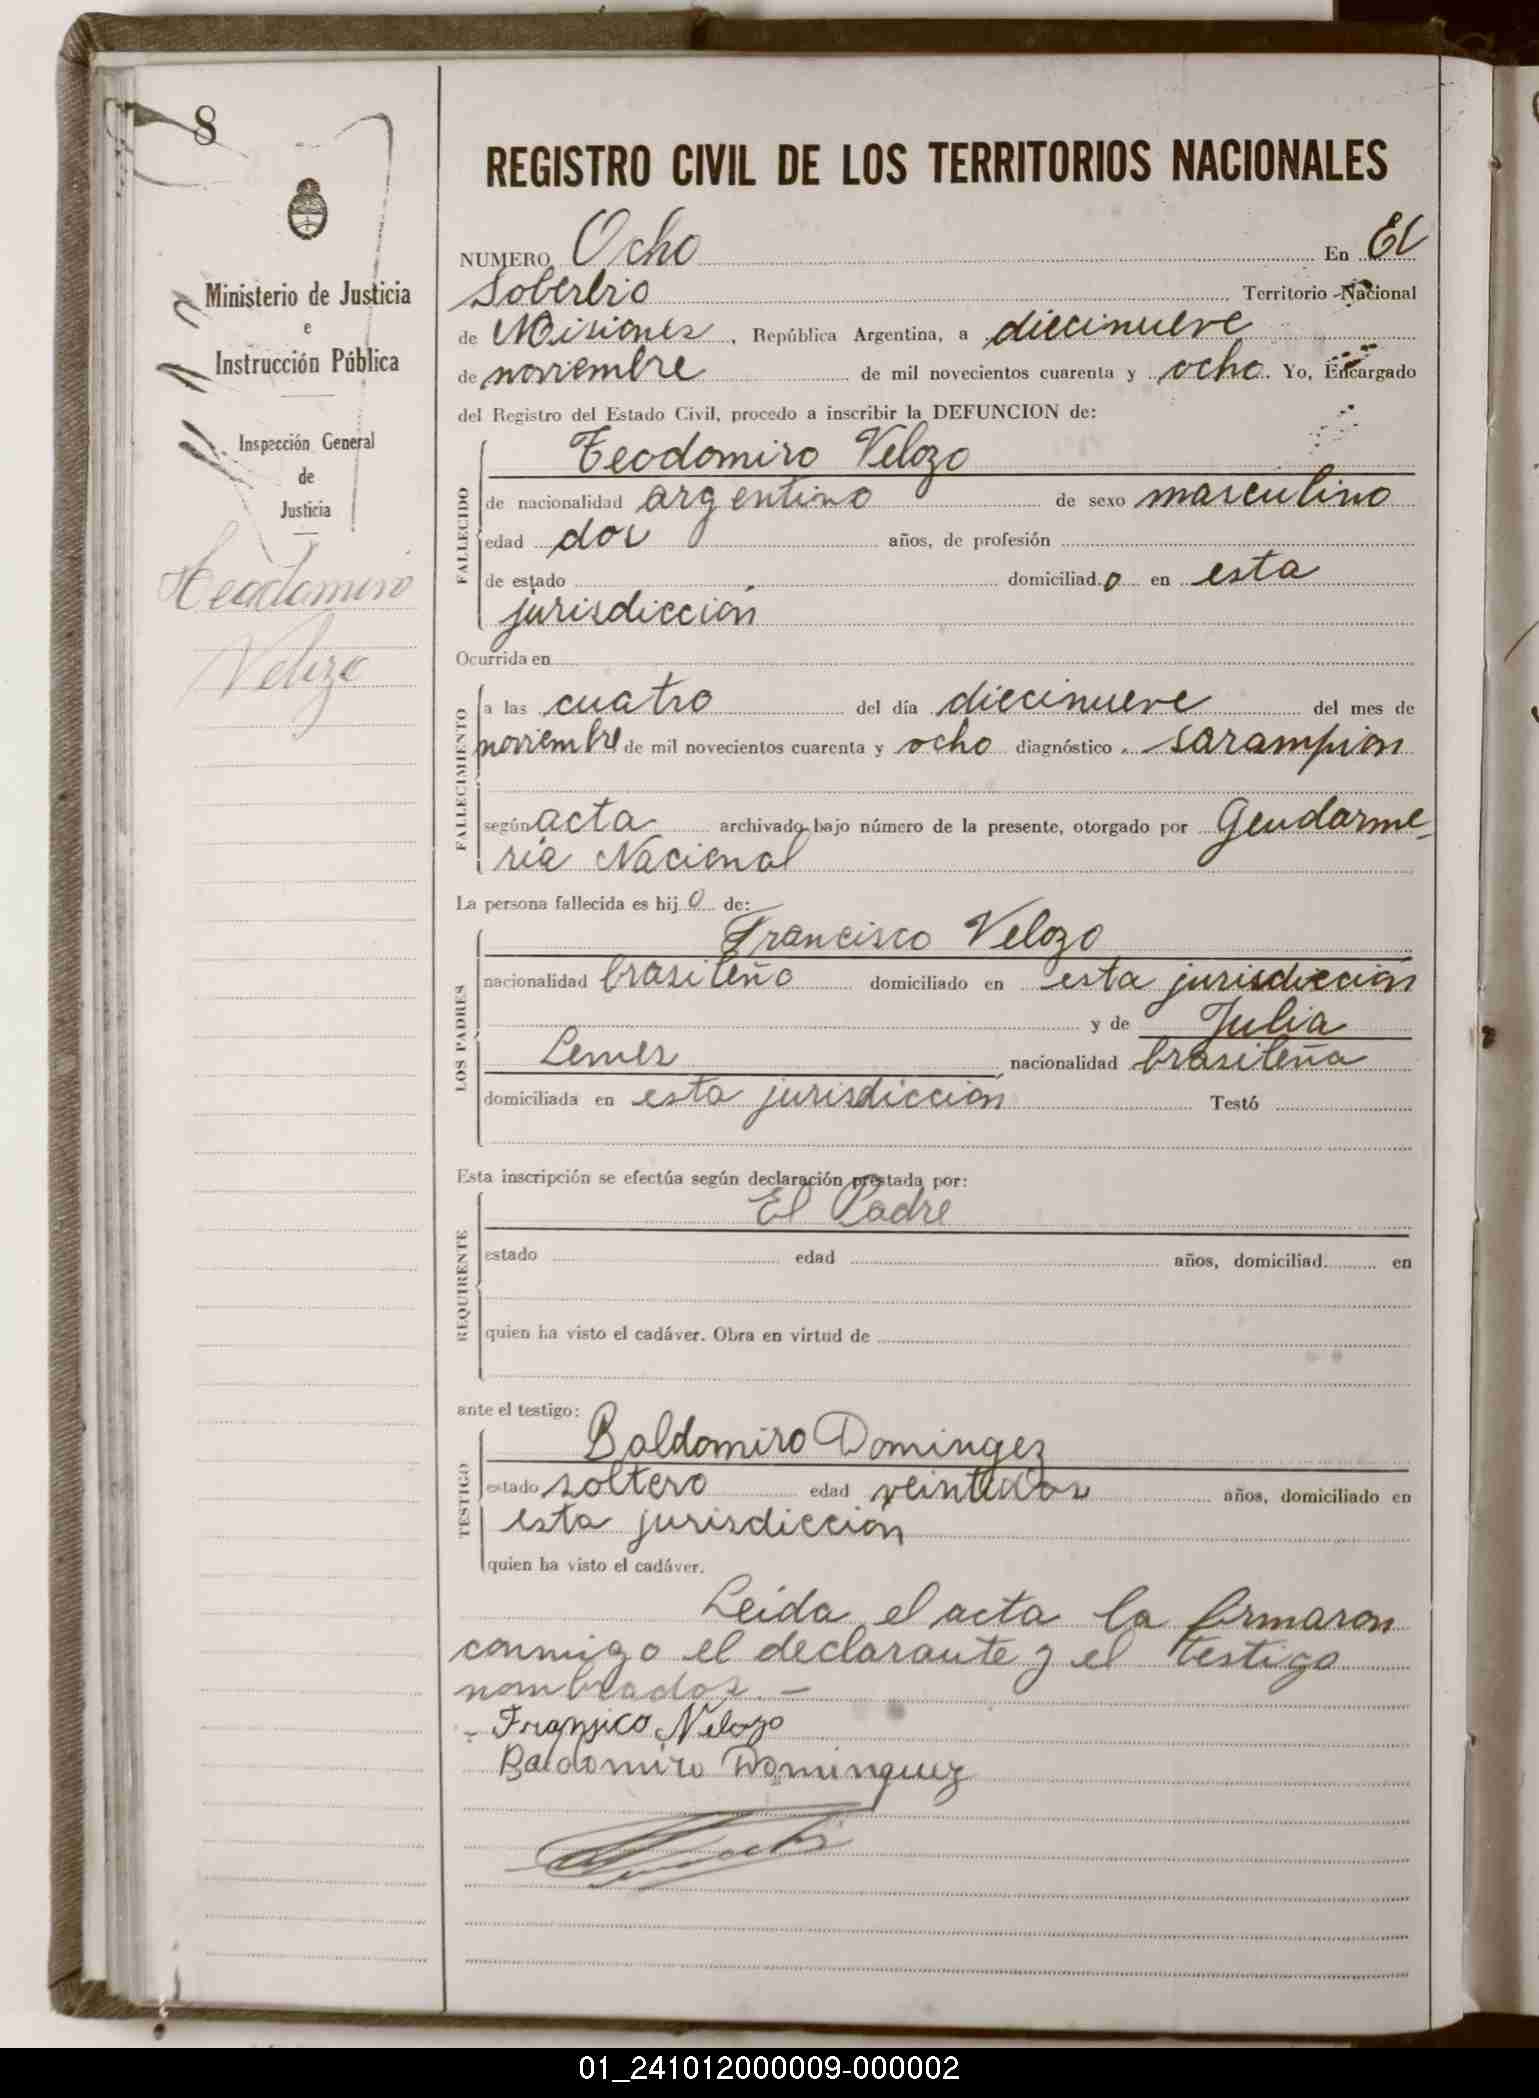 8
Ministerio de Justicia
e
Instrucción Pública
Inspección General
de
Justicia
Teodomiro
Velozo
REGISTRO CIVIL DE LOS TERRITORIOS NACIONALES
NUMERO Ocho En El
Soberbio Territorio Nacional
de Misiones, República Argentina, a diecinueve
de noviembre de mil novecientos cuarenta y ocho. Yo, Encargado
del Registro del Estado Civil, procedo a inscribir la DEFUNCION de:
FALLECIDO
Teodomiro Velozo
de nacionalidad argentino de sexo masculino
edad dos años, de profesión
de estado domiciliado en esta
jurisdicción
Ocurrida en
FALLECIMIENTO
a las cuatro del día diecinueve del mes de
noviembre de mil novecientos cuarenta y ocho diagnóstico sarampión
según acta archivado bajo número de la presente, otorgado por Gendarme-
ría Nacional
La persona fallecida es hijo de:
LOS PADRES
Francisco Velozo
nacionalidad brasileño domiciliado en esta jurisdicción
y de Julia
Lemes nacionalidad brasileña
domiciliada en esta jurisdicción Testó
Esta inscripción se efectúa según declaración prestada por:
REQUIRENTE
El Padre
estado edad años, domiciliad en
quien ha visto el cadáver. Obra en virtud de
ante el testigo:
TESTIGO
Baldomiro Domingez
estado soltero edad veintidos años, domiciliado en
esta jurisdicción
quien ha visto el cadáver.
Leída el acta la firmaron
conmigo el declarante y el testigo
nombrados. -
Fransico Velozo
Baldomiro Dominguez
01_241012000009-000002